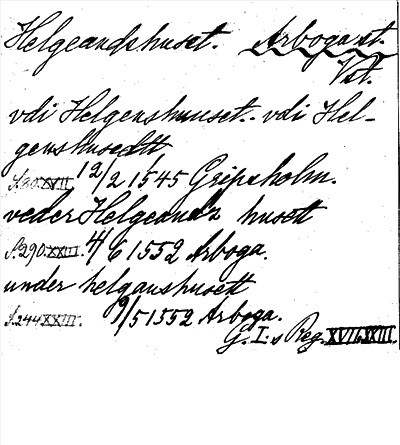 Helgeandshuset. Arboga st.
Vst.
vdi Helgenshuuset. vdi Hel-
genshusedtt
S. 30 XVII, 12/2 1545 Gripsholm.
veder Helgeandz husett
S. 290 XXIII. 4/6 1552 Arboga.
under helganshusett
S. 244 XXIII. 9/5 1552 Arboga.
G. I:s Reg. XVII, XXIII.